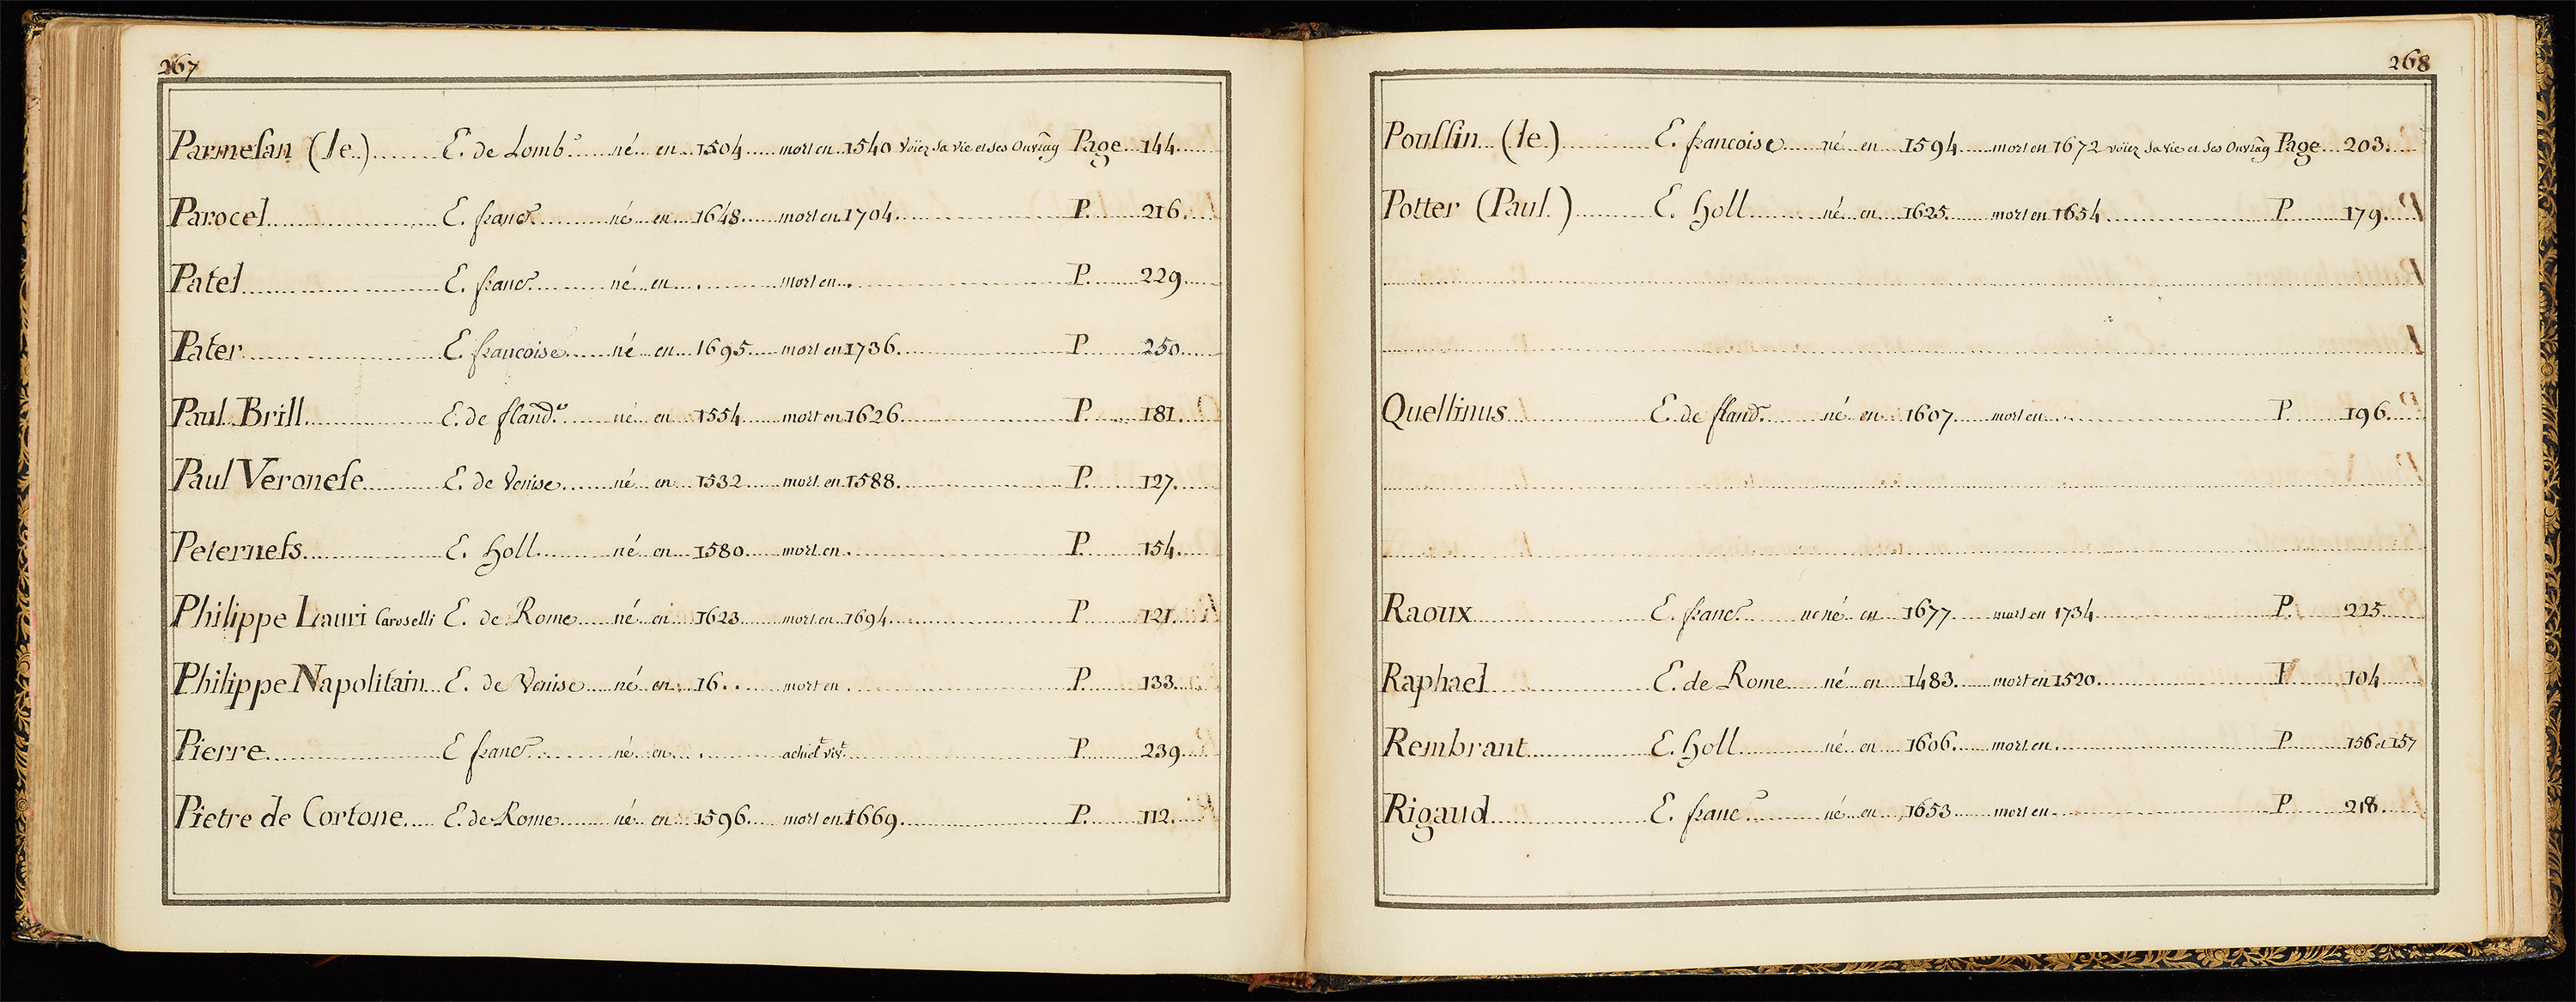 267
Parmesan (le) E. de Lomb.e né en 1504 mort en 1540 Voïez sa vie et ses Ouvrag Page 144.
Parocel E. franc.e né en 1648 mort en 1704 P. 216.
Patel E. franc.e né en . mort en . P. 229
Pater E. francoise né en 1695 mort en 1736 P. 250
Paul Brill E. de fland.e né en 1554 mort en 1626 P. 181.
Paul Veronese E. de Venise né en 1532 mort en 1588. P. 127.
Peternefs E. Holl né en 1580 mort en . P. 154.
Philippe Lauri Caroselli E. de Rome né en 1623 mort en 1694 P 121.
Philippe Napolitain E. de Venise né en 16 . . mort en . P. 133
Pierre E franc.e né en . actuel.t viv.t P. 239.
Pietre de Cortone E. de Rome né en 1596. mort en 1669. P. 112.
268
Poussin (le) E. francoise né en 1594 mort en 1672 voïez sa vie et ses Ouvrag Page 203.
Potter (Paul) E. Holl né en 1625. mort en 1654 P 179.
Quellinus E. de fland.e né en 1607 mort en . P. 196.
Raoux E. franc.e né en 1677 mort en 1734 P. 225
Raphael E. de Rome né en 1483. mort en 1520. P 104
Rembrant E. Holl né en 1606. mort en P 156 et 157
Rigaud E. franc.e né en 1653 mort en P 218.